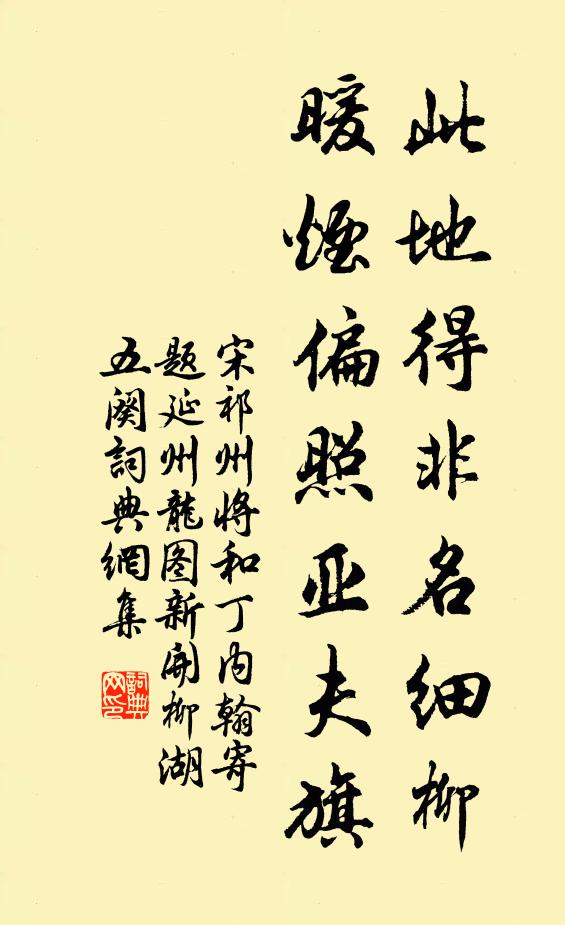 此地得非名细柳
暖烟偏照亚夫旗
宋祁州将和丁内翰寄
题延州龙图新开柳湖
五阕词典网集
詞典
网印